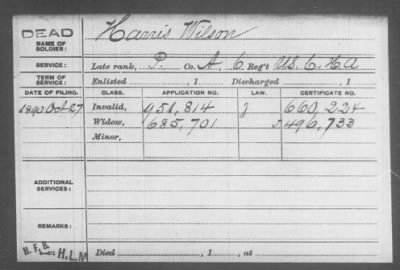 DEAD Harris Wilson
NAME OF SOLDIER:
SERVICE: Late rank, P. Co. A, 6 Reg't U.S.C.H.A
TERM OF SERVICE: Enlisted , 1 Discharged , 1
DATE OF FILING. CLASS. APPLICATION NO. LAW. CERTIFICATE NO.
1890 Oct 27 Invalid, 951,814 J 660,224
Widow, 685,701 496,733
Minor,
ADDITIONAL SERVICES:
REMARKS:
H.L.M
Died , 1 , at